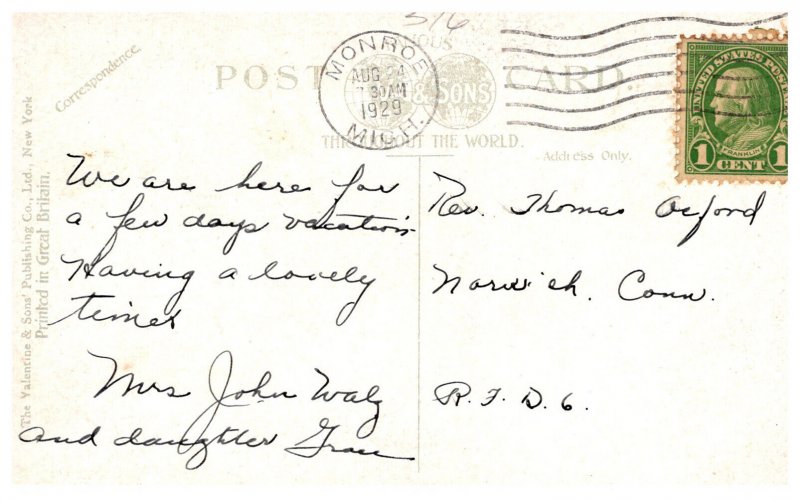 516
MONROE
AUG 24
7 30 AM
1929
MICH.
POST CARD.
& SONS
THROUGHOUT THE WORLD.
Correspondence.
Address Only.
UNITED STATES POSTAGE
FRANKLIN
1 CENT 1
The Valentine & Sons' Publishing Co., Ltd., New York
Printed in Great Britain.
We are here for
a few days vacation
Having a lovely
time
Mrs John Walz
and daughter Grace
Rev. Thomas Oxford
Norwich, Conn.
R. F. D. 6.